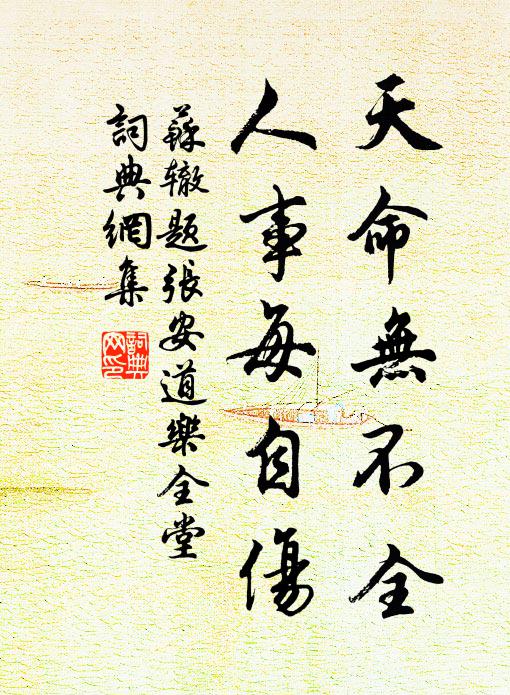 天命無不全
人事每自傷
蘇辙題張安道樂全堂
詞典網集
詞典
网印